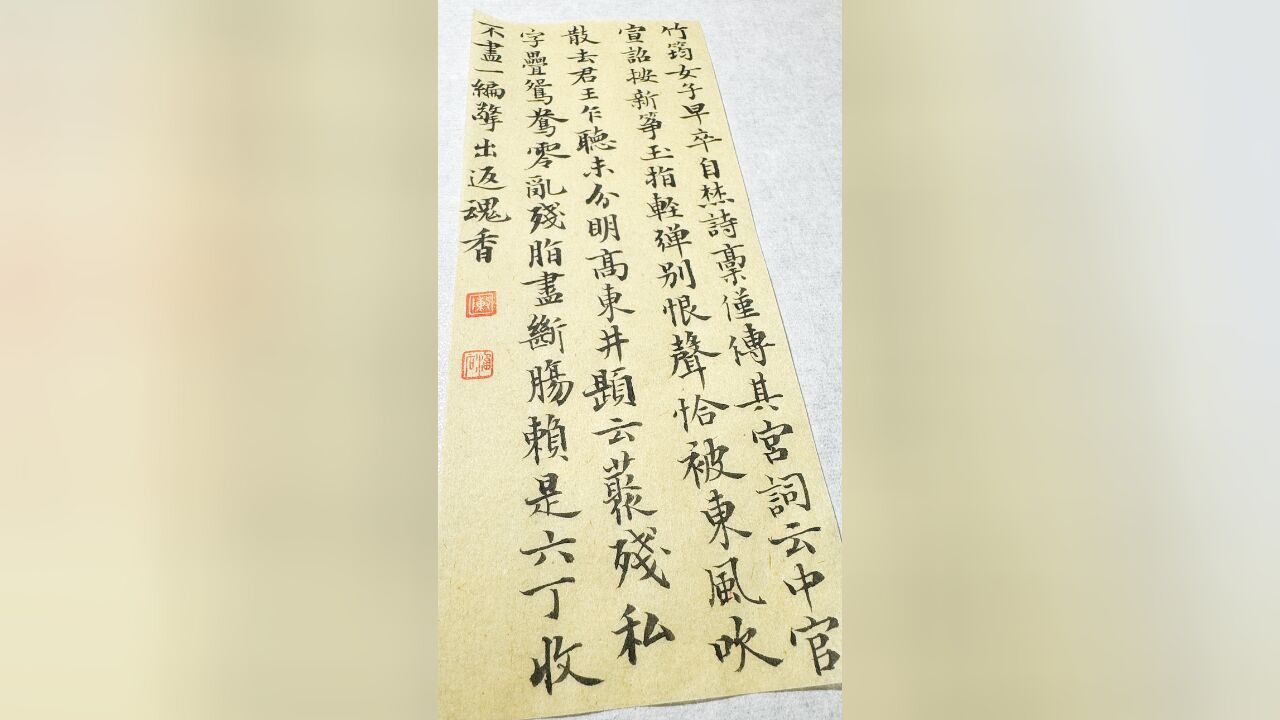 竹筠女子早卒自焚詩稾僅傳其宮詞云中官
宣詔按新箏玉指輕弹别恨聲恰被東風吹
散去君王乍聽未分明高東井題云蕞殘私
字疊鴛鴦零亂殘脂盡斷腸賴是六丁收
不盡一編擎出返魂香